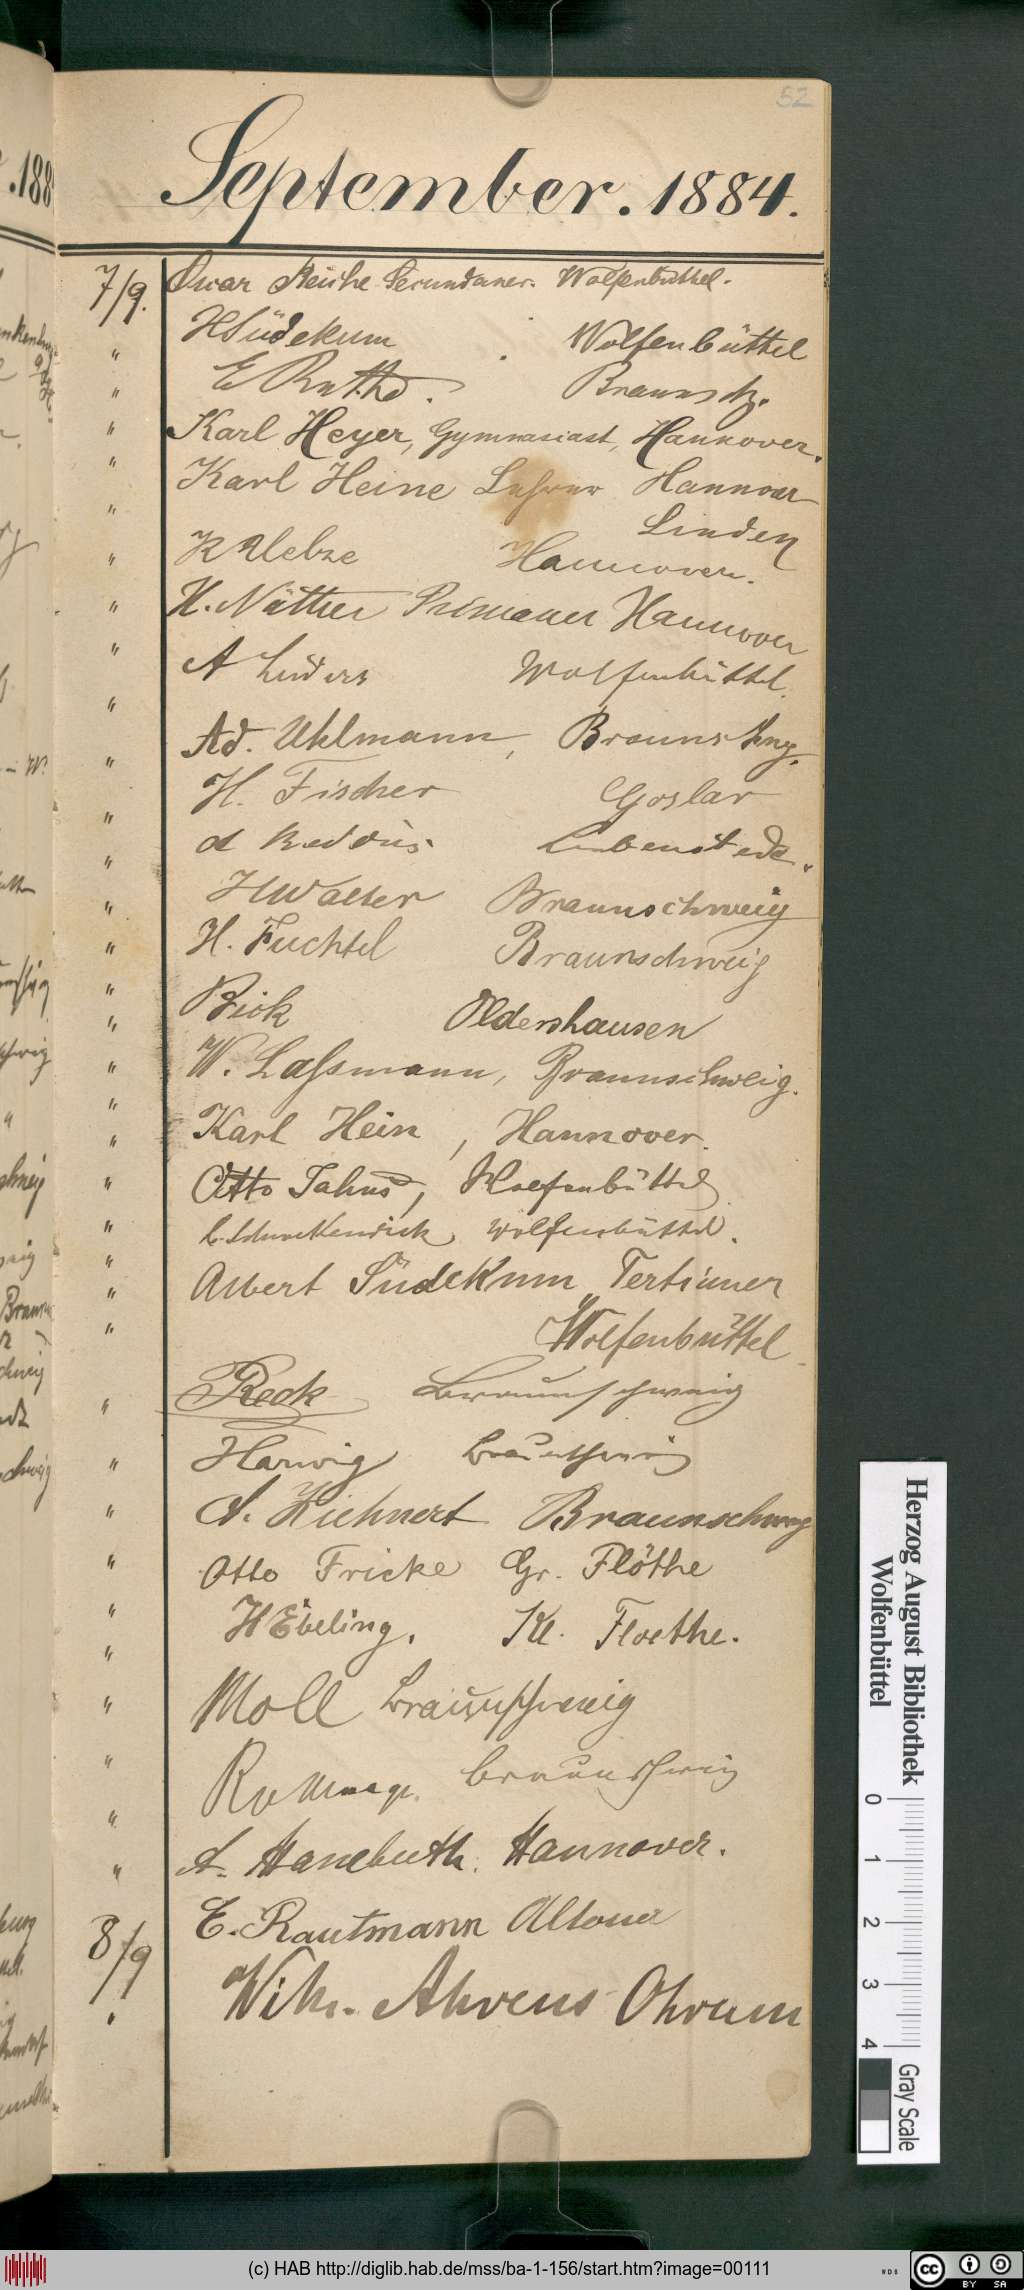 52
September. 1884.
7/9. Oscar Reiche Secundaner. Wolfenbüttel.
" HSüdekum Wolfenbüttel
" E Braunschw.
" Karl Heyer, Gymnasiast, Hannover.
" Karl Heine Lehrer Hannover
" Linden
" K Hannover.
" H. Näther Primaner Hannover
" A Lüders Wolfenbüttel.
" Ad. Uhlmann, Braunschwg.
" H. Fischer Goslar
" A Beddies Lebenstedt.
" HWalter Braunschweig
" H. Fuchtel Braunschweig
" Bick Oldershausen
" W. Laſsmann, Braunschweig.
" Karl Hein, Hannover.
" Otto Jahns, Wolfenbüttel
" Wolfenbüttel.
" Albert Südekum Tertianer
" Wolfenbüttel.
" Reck Braunschweig
" Harwig Braunschweig
" A. Kiehnert Braunschweig
" Otto Fricke Gr. Flöthe
" HEbeling. Kl. Floethe.
" Moll Braunschweig
" Braunschweig
" A. Hanebuth. Hannover.
" E. Rautmann Altona
8/9 Wilh. Ahrens Ohrum
Herzog August Bibliothek
Wolfenbüttel
0 1 2 3 4
Gray Scale
(c) HAB http://diglib.hab.de/mss/ba-1-156/start.htm?image=00111
cc BY SA